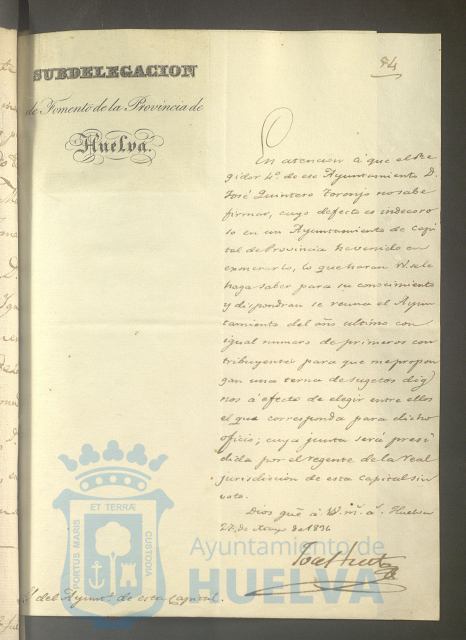 84
SUBDELEGACION
de Fomento de la Provincia de
Huelva.
En atencion á que el Re
gidor 4º de ese Ayuntamiento D.
José Quintero Toronjo no sabe
firmar, cuyo defecto es indecoro
so en un Ayuntamiento de capi
tal de Provincia he venido en
exonerarlo, lo que haran V. se le
haga saber para su conocimiento
y dispondran se reuna el Ayun
tamiento del año ultimo con
igual numero de primeros con
tribuyentes para que me propon
gan una terna de sugetos dig
nos á efecto de elegir entre ellos
el que corresponda para dicho
oficio; cuya junta será presi
dida por el regente de la Real
jurisdiccion de esta Capital sin
voto.
Dios gue á V. m. a. Huelva
27 de Mayo de 1834
del Ayunto de esta Capital.
ET TERRÆ
PORTUS MARIS
CUSTODIA
Ayuntamiento de
HUELVA